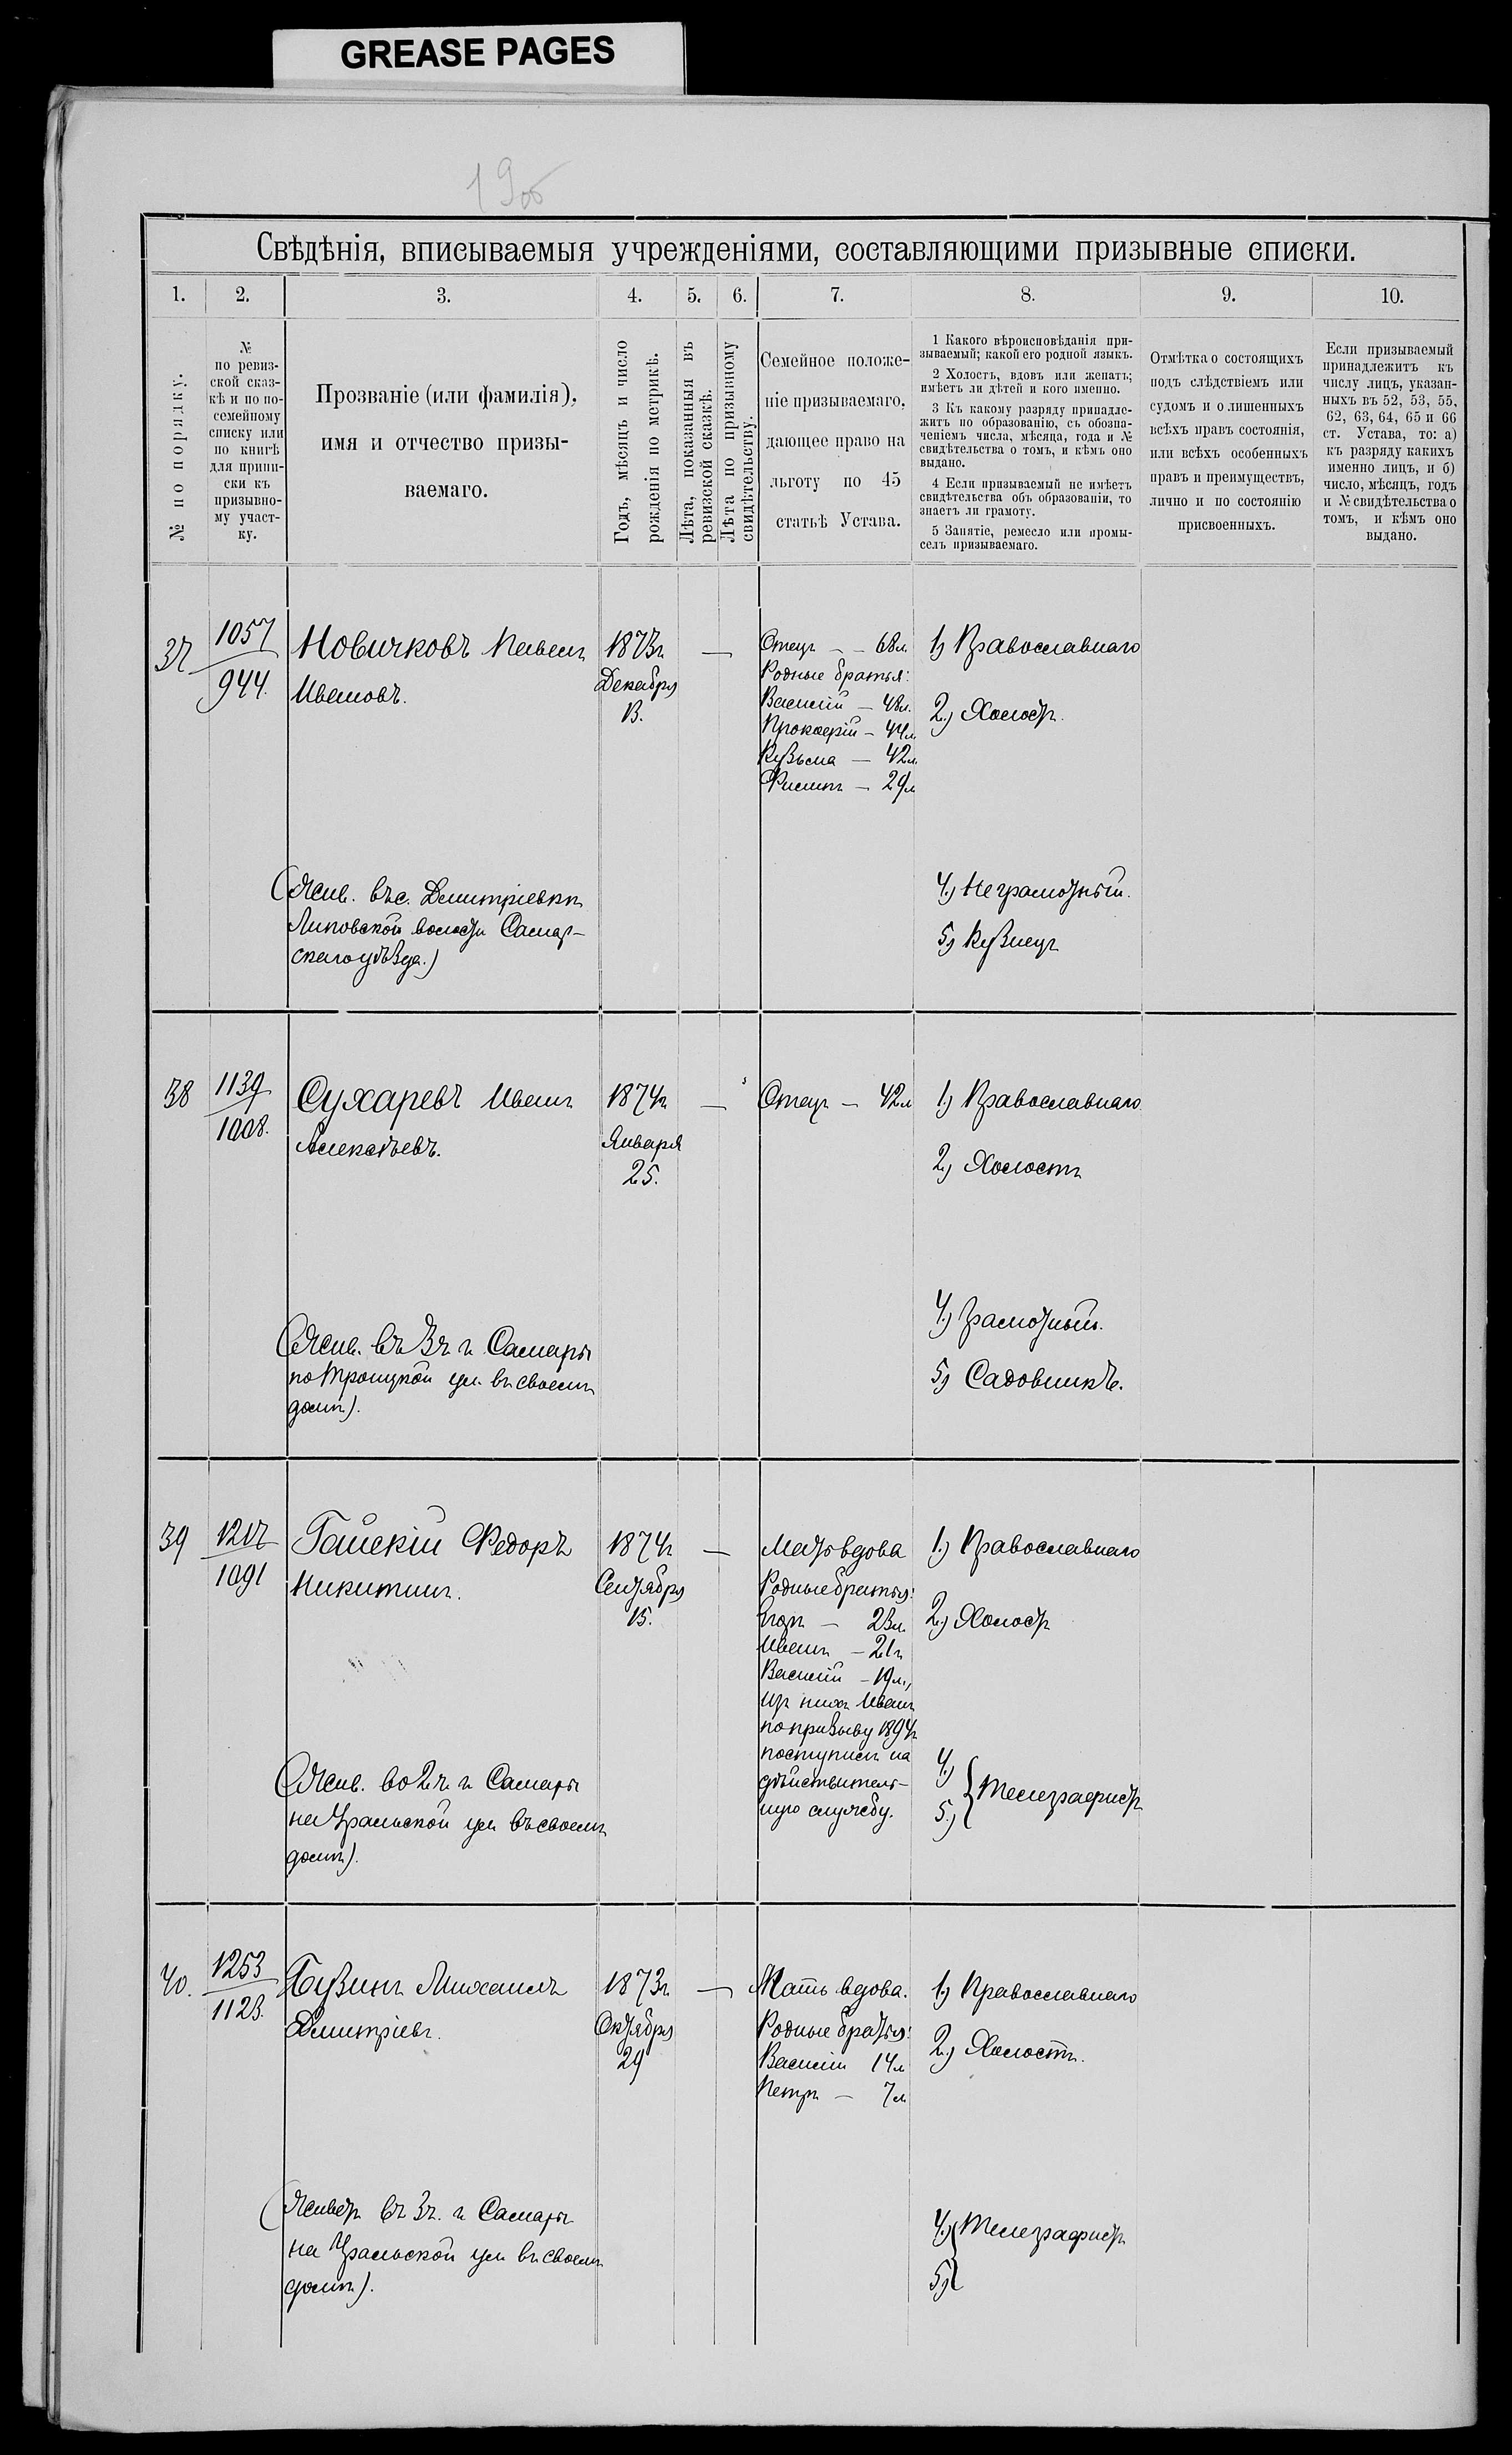 GREASE PAGES
19об
Свѣдѣнія, вписываемыя учрежденіями, составляющими призывные списки.
1. 2. 3. 4. 5. 6. 7. 8. 9. 10.
№ по порядку.
№
по ревиз-
ской сказ-
кѣ и по по-
семейному
списку или
по книгѣ
для припи-
ски къ
призывно-
му участ-
ку.
Прозваніе (или фамилія),
имя и отчество призы-
ваемаго.
Годъ, мѣсяцъ и число
рожденія по метрикѣ.
Лѣта, показанныя въ
ревизской сказкѣ.
Лѣта по призывному
свидѣтельству.
Семейное положе-
ніе призываемаго,
дающее право на
льготу по 45
статьѣ Устава.
1 Какого вѣроисповѣданія при-
зываемый; какой его родной языкъ.
2 Холостъ, вдовъ или женатъ;
имѣетъ ли дѣтей и кого именно.
3 Къ какому разряду принадле-
житъ по образованію, съ обозна-
ченіемъ числа, мѣсяца, года и №
свидѣтельства о томъ, и кѣмъ оно
выдано.
4 Если призываемый не имѣетъ
свидѣтельства объ образованіи, то
знаетъ ли грамоту.
5 Занятіе, ремесло или промы-
селъ призываемаго.
Отмѣтка о состоящихъ
подъ слѣдствіемъ или
судомъ и о лишенныхъ
всѣхъ правъ состоянія,
или всѣхъ особенныхъ
правъ и преимуществъ,
лично и по состоянію
присвоенныхъ.
Если призываемый
принадлежитъ къ
числу лицъ, указан-
ныхъ въ 52, 53, 55,
62, 63, 64, 65 и 66
ст. Устава, то: а)
къ разряду какихъ
именно лицъ, и б)
число, мѣсяцъ, годъ
и № свидѣтельства о
томъ, и кѣмъ оно
выдано.
37
1057
944.
Новичковъ Павелъ
Ивановъ.
1873г
Декабря
13.
—
Отецъ — 68л
Родные братья:
Василій — 48л.
Прокофій — 44л
Кузьма — 42л
Филипъ — 29л
1) Православнаго
2.) Холостъ.
(Жив. въ с. Дмитріевкѣ
Липовской волости Самар-
скаго уѣзда.)
4.) Неграмотный.
5) Кузнецъ
38
1139
1008.
Сухаревъ Иванъ
Алексѣевъ.
1874г
Января
25.
—
Отецъ — 42л
1.) Православнаго
2.) Холостъ
(Жив. въ 3ч. г. Самары
по Троицкой ул. въ своемъ
домѣ).
4.) Грамотный.
5) Садовникъ.
39
1217
1091
Гайскій Федоръ
Никитинъ.
1874г
Сентября
15.
—
Мать вдова
Родные братья:
Егоръ — 23л.
Иванъ — 21г
Василій — 19л.,
изъ нихъ Иванъ
по призыву 1894г
поступилъ на
дѣйствитель-
ную службу.
1.) Православнаго
2.) Холостъ
(Жив. во 2ч. г. Самары
на Уральской ул въ своемъ
домѣ).
4.)
5.)
Телеграфистъ
40.
1253
1123.
Бузинъ Михаилъ
Дмитріевъ.
1873г
Октября
29
—
Мать вдова.
Родные братья:
Василій 14л
Петръ — 7л
1.) Православнаго
2.) Холостъ.
(Живетъ въ 3ч. г. Самары
на Уральской ул въ своемъ
домѣ).
4.) Телеграфистъ
5)